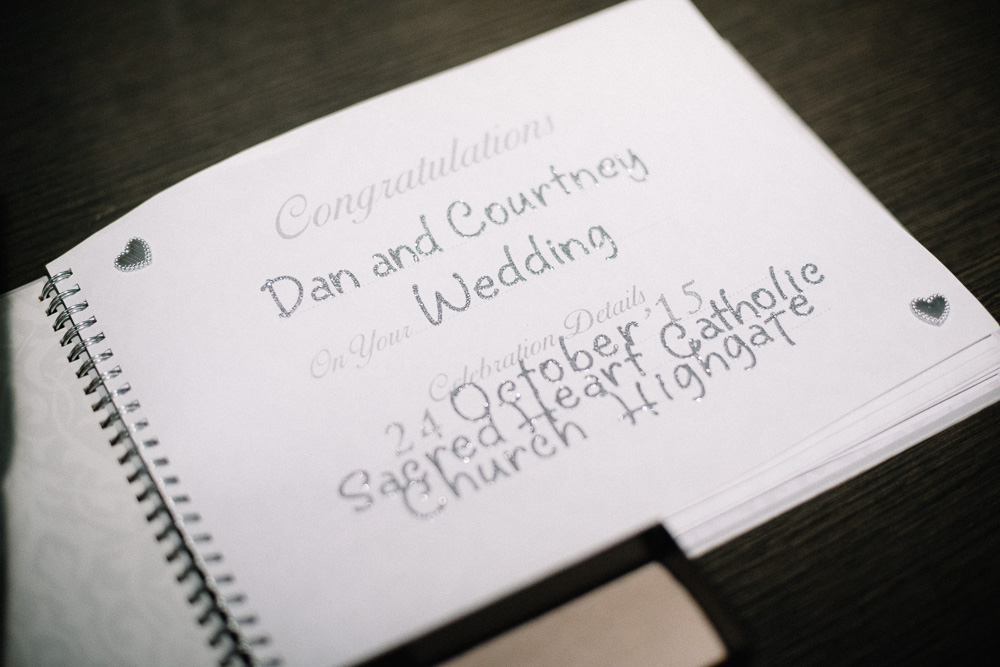 Congratulations
Dan and Courtney
On Your Wedding
Celebration Details
24 October, 15
Sacred Heart Catholic
Church Highgate